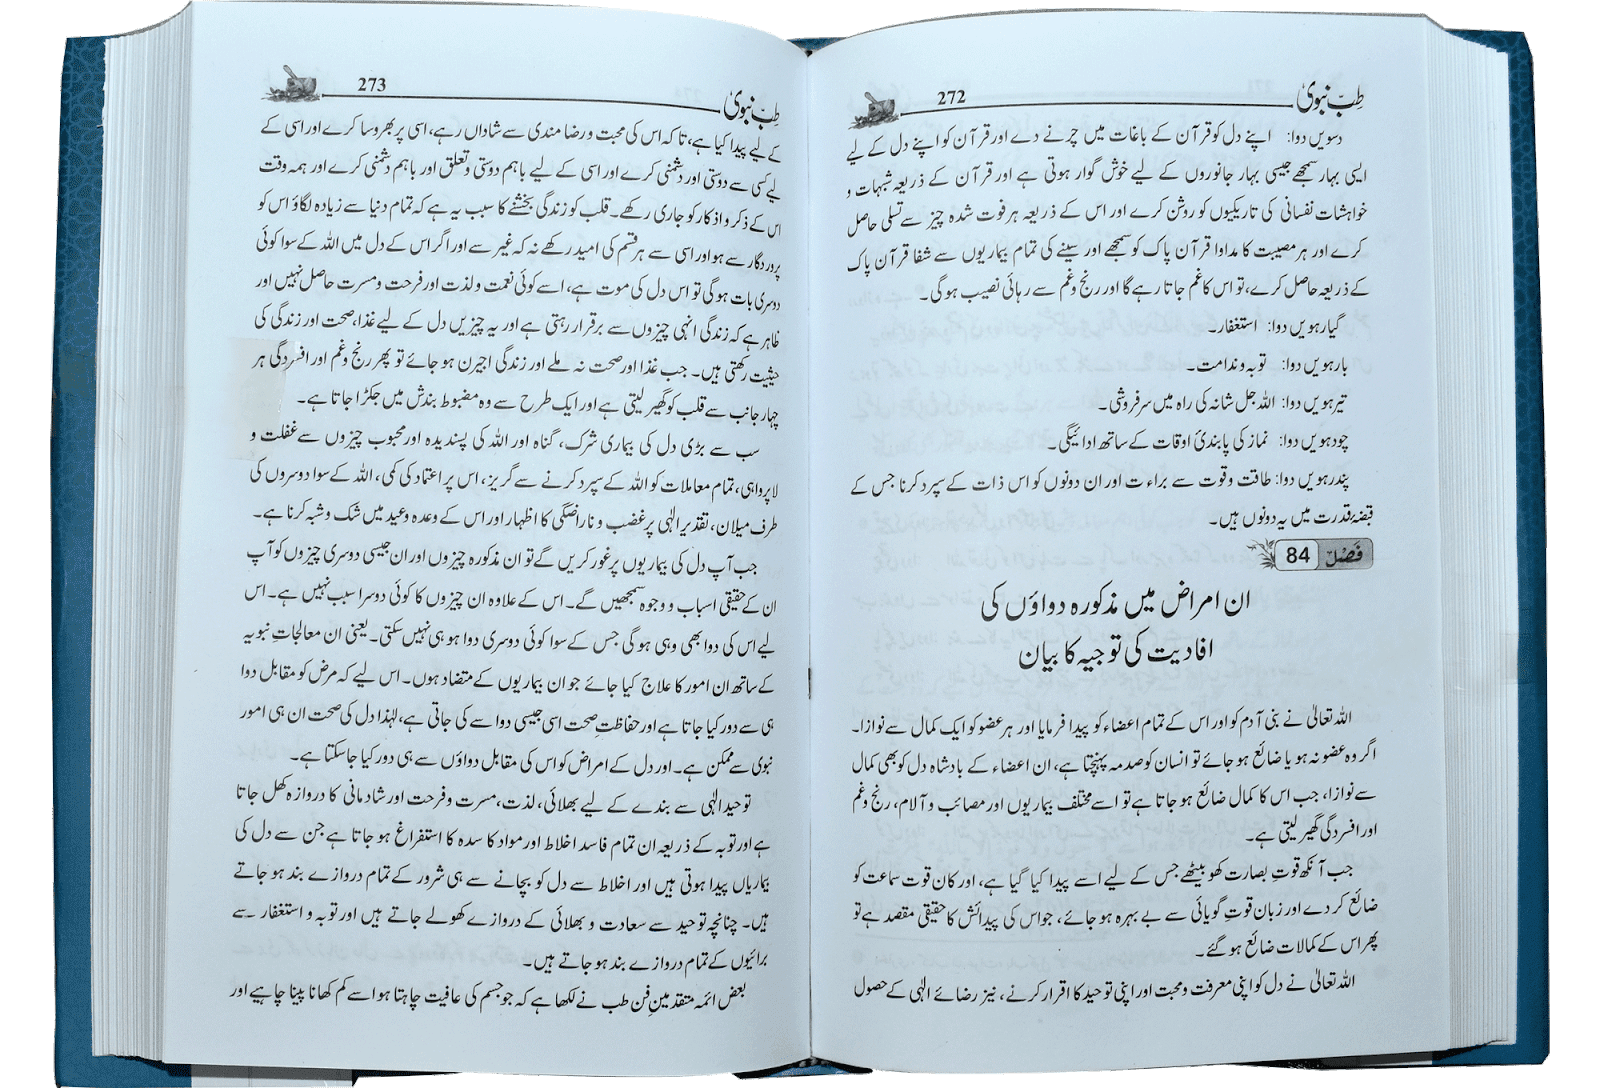 طِبِّ نبویؐ
272
دسویں دوا: اپنے دل کو قرآن کے باغات میں چرنے دے اور قرآن کو اپنے دل کے لیے
ایسی بہار سمجھے جیسی بہار جانوروں کے لیے خوش گوار ہوتی ہے اور قرآن کے ذریعہ شبہات و
خواہشات نفسانی کی تاریکیوں کو روشن کرے اور اس کے ذریعہ ہر فوت شدہ چیز سے تسلی حاصل
کرے اور ہر مصیبت کا مداوا قرآن پاک کو سمجھے اور سینے کی تمام بیماریوں سے شفا قرآن پاک
کے ذریعہ حاصل کرے، تو اس کا غم جاتا رہے گا اور رنج و غم سے رہائی نصیب ہوگی۔
گیارہویں دوا: استغفار۔
بارہویں دوا: توبہ و ندامت۔
تیرہویں دوا: اللہ جل شانہ کی راہ میں سرفروشی۔
چودہویں دوا: نماز کی پابندیٔ اوقات کے ساتھ ادائیگی۔
پندرہویں دوا: طاقت و قوت سے براءت اور ان دونوں کو اس ذات کے سپرد کرنا جس کے
قبضۂ قدرت میں یہ دونوں ہیں۔
فَصْلٌ 84
ان امراض میں مذکورہ دواؤں کی
افادیت کی توجیہ کا بیان
اللہ تعالیٰ نے بنی آدم کو اور اس کے تمام اعضاء کو پیدا فرمایا اور ہر عضو کو ایک کمال سے نوازا۔
اگر وہ عضو نہ ہو یا ضائع ہو جائے تو انسان کو صدمہ پہنچتا ہے، ان اعضاء کے بادشاہ دل کو بھی کمال
سے نوازا، جب اس کا کمال ضائع ہو جاتا ہے تو اسے مختلف بیماریوں اور مصائب و آلام، رنج و غم
اور افسردگی گھیر لیتی ہے۔
جب آنکھ قوتِ بصارت کھو بیٹھے جس کے لیے اسے پیدا کیا گیا ہے، اور کان قوت سماعت کو
ضائع کر دے اور زبان قوتِ گویائی سے بے بہرہ ہو جائے، جو اس کی پیدائش کا حقیقی مقصد ہے تو
پھر اس کے کمالات ضائع ہو گئے۔
اللہ تعالیٰ نے دل کو اپنی معرفت و محبت اور اپنی توحید کا اقرار کرنے، نیز رضائے الٰہی کے حصول
طِبِّ نبویؐ
273
کے لیے پیدا کیا ہے، تاکہ اس کی محبت و رضا مندی سے شاداں رہے، اسی پر بھروسا کرے اور اسی کے
لیے کسی سے دوستی اور دشمنی کرے اور اسی کے لیے باہم دوستی و تعلق اور باہم دشمنی کرے اور ہمہ وقت
اس کے ذکر و اذکار کو جاری رکھے۔ قلب کو زندگی بخشنے کا سبب یہ ہے کہ تمام دنیا سے زیادہ لگاؤ اس کو
پروردگار سے ہو اور اسی سے ہر قسم کی امید رکھے نہ کہ غیر سے اور اگر اس کے دل میں اللہ کے سوا کوئی
دوسری بات ہوگی تو اس دل کی موت ہے، اسے کوئی نعمت و لذت اور فرحت و مسرت حاصل نہیں اور
ظاہر ہے کہ زندگی انہی چیزوں سے برقرار رہتی ہے اور یہ چیزیں دل کے لیے غذا، صحت اور زندگی کی
حیثیت رکھتی ہیں۔ جب غذا اور صحت نہ ملے اور زندگی اجیرن ہو جائے تو پھر رنج و غم اور افسردگی ہر
چہار جانب سے قلب کو گھیر لیتی ہے اور ایک طرح سے وہ مضبوط بندش میں جکڑا جاتا ہے۔
سب سے بڑی دل کی بیماری شرک، گناہ اور اللہ کی پسندیدہ اور محبوب چیزوں سے غفلت و
لاپرواہی، تمام معاملات کو اللہ کے سپرد کرنے سے گریز، اس پر اعتماد کی کمی، اللہ کے سوا دوسروں کی
طرف میلان، تقدیر الٰہی پر غضب و ناراضگی کا اظہار اور اس کے وعدہ وعید میں شک و شبہ کرنا ہے۔
جب آپ دل کی بیماریوں پر غور کریں گے تو ان مذکورہ چیزوں اور ان جیسی دوسری چیزوں کو آپ
ان کے حقیقی اسباب و وجوہ سمجھیں گے۔ اس کے علاوہ ان چیزوں کا کوئی دوسرا سبب نہیں ہے۔ اس
لیے اس کی دوا بھی وہی ہوگی جس کے سوا کوئی دوسری دوا ہو ہی نہیں سکتی۔ یعنی ان معالجاتِ نبویہ
کے ساتھ ان امور کا علاج کیا جائے جو ان بیماریوں کے متضاد ہوں۔ اس لیے کہ مرض کو مقابل دوا
ہی سے دور کیا جاتا ہے اور حفاظتِ صحت اسی جیسی دوا سے کی جاتی ہے، لہٰذا دل کی صحت ان ہی امور
نبوی سے ممکن ہے۔ اور دل کے امراض کو اس کی مقابل دواؤں سے ہی دور کیا جا سکتا ہے۔
توحید الٰہی سے بندے کے لیے بھلائی، لذت، مسرت و فرحت اور شادمانی کا دروازہ کھل جاتا
ہے اور توبہ کے ذریعہ ان تمام فاسد اخلاط اور مواد کا سدہ کا استفراغ ہو جاتا ہے جن سے دل کی
بیماریاں پیدا ہوتی ہیں اور اخلاط سے دل کو بچانے سے ہی شرور کے تمام دروازے بند ہو جاتے
ہیں۔ چنانچہ توحید سے سعادت و بھلائی کے دروازے کھولے جاتے ہیں اور توبہ و استغفار سے
برائیوں کے تمام دروازے بند ہو جاتے ہیں۔
بعض ائمہ متقدمینِ فن طب نے لکھا ہے کہ جو جسم کی عافیت چاہتا ہو اسے کم کھانا پینا چاہیے اور